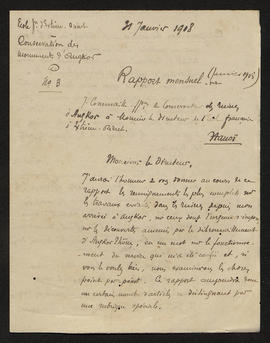 Ecole fse d'Extrême-Orient
Conservation des
Monuments d'Angkor
No 3
31 Janvier 1908
Rapport mensuel (janvier 1908)
J. Commaille, Conservateur des ruines
d'Angkor à Monsieur le Directeur de l'École française
d'Extrême-Orient.
Hanoi
Monsieur le Directeur,
J'aurai l'honneur de vous donner au cours de ce
rapport les renseignements les plus complets sur
les travaux dans les ruines depuis mon
arrivée à Angkor,
sur les découvertes amenées par le débroussaillement
d'Angkor-Thom, en un mot sur le fonctionne-
ment du service qui m'a été confié et, si
vous le voulez bien, nous examinerons les choses
point par point. Ce rapport comprendra donc
un certain nombre d'articles se distinguant par
une rubrique spéciale.